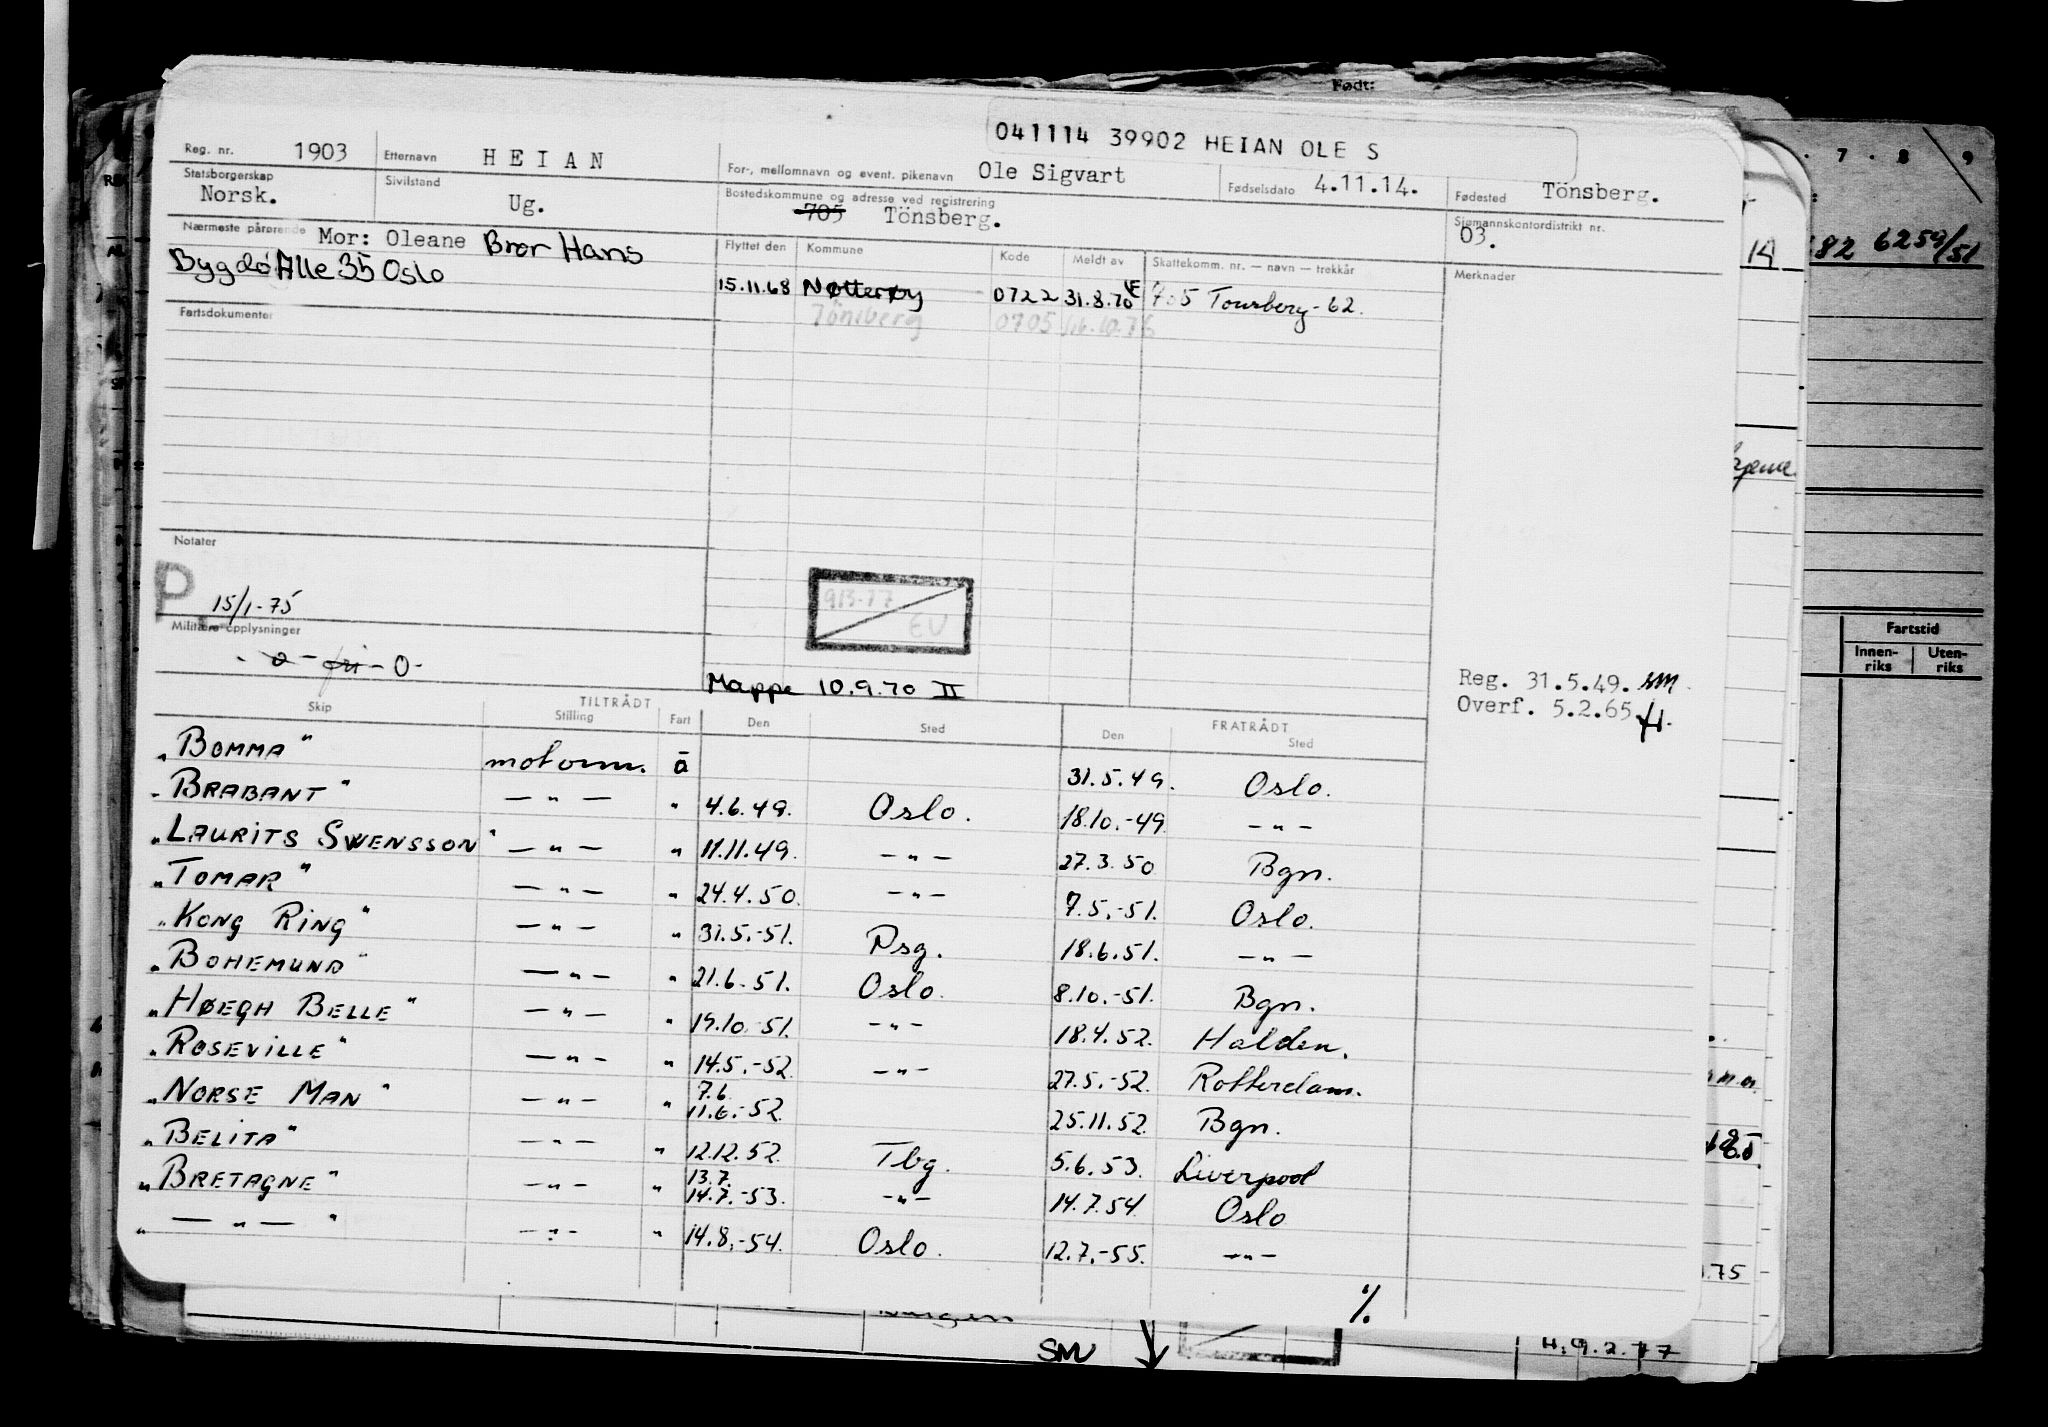 Født:
041114 39902 HEIAN OLE S
Reg. nr. 1903 Etternavn HEIAN For-, mellomnavn og event. pikenavn Ole Sigvart Fødselsdato 4.11.14. Fødested Tönsberg.
Statsborgerskap Norsk. Sivilstand Ug. Bostedskommune og adresse ved registrering 705 Tönsberg. Sjømannskontordistrikt nr. 03.
Nærmeste pårørende Mor: Oleane Bror Hans
Bygdø Alle 35 Oslo
Flyttet den Kommune Kode Meldt av Skattekomm. nr. — navn — trekkår Merknader
15.11.68 Nøtterøy 0722 31.8.70 705 Tønsberg - 62.
Tönsberg 0705
Fartsdokumenter
Notater
P 15/1-75
913-77 EU
Militære opplysninger
- 0 - fri - 0 -
Mappe 10.9.70 II
Reg. 31.5.49. SM
Overf. 5.2.65
TILTRÅDT FRATRÅDT
Skip Stilling Fart Den Sted Den Sted
"BOMMA" motorm. ā 31.5.49. Oslo.
"BRABANT" — " — " 4.6.49. Oslo. 18.10.-49 — " —
"LAURITS SWENSSON" — " — " 11.11.49. — " — 27.3.50 Bgn.
"TOMAR" — " — " 24.4.50. — " — 7.5.-51. Oslo.
"KONG RING" — " — " 31.5.-51. Psg. 18.6.51. — " —
"BOHEMUND" — " — " 21.6.51. Oslo. 8.10.-51. Bgn.
"HØEGH BELLE" — " — " 19.10.51. — " — 18.4.52. Halden.
"ROSEVILLE" — " — " 14.5.-52. — " — 27.5.-52. Rotterdam.
"NORSE MAN" — " — " 7.6. 11.6.-52. 25.11.52. Bgn.
"BELITA" — " — " 12.12.52. Tbg. 5.6.53. Liverpool
"BRETAGNE" — " — " 13.7. 14.7.-53. — " — 14.7.54. Oslo
" — " — " — " — " 14.8.-54. Oslo. 12.7.-55. — " —
%
SM
H.9.2.77
7 8 9
82 6259/51
Fartstid
Innen-riks Uten-riks